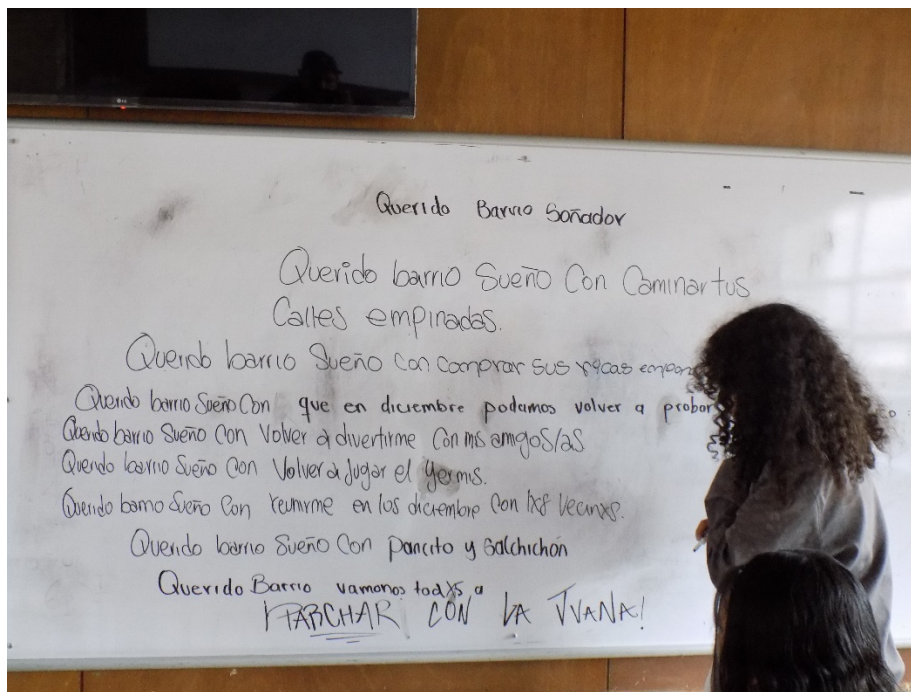 LG
Querido Barrio Soñador
Querido barrio Sueño Con Caminar tus
Calles empinadas.
Querido barrio Sueño con comprar sus ricas
Querido barrio Sueño Con que en diciembre podamos volver a probar
Querido barrio Sueño Con Volver a divertirme Con mis amigos/as
Querido barrio Sueño Con Volver a Jugar el yermis.
Querido barrio Sueño Con reunirme en los diciembre Con lxs Vecinxs.
Querido barrio Sueño Con pancito y salchichón
Querido Barrio vamonos todxs a
¡PARCHAR CON LA JUANA!